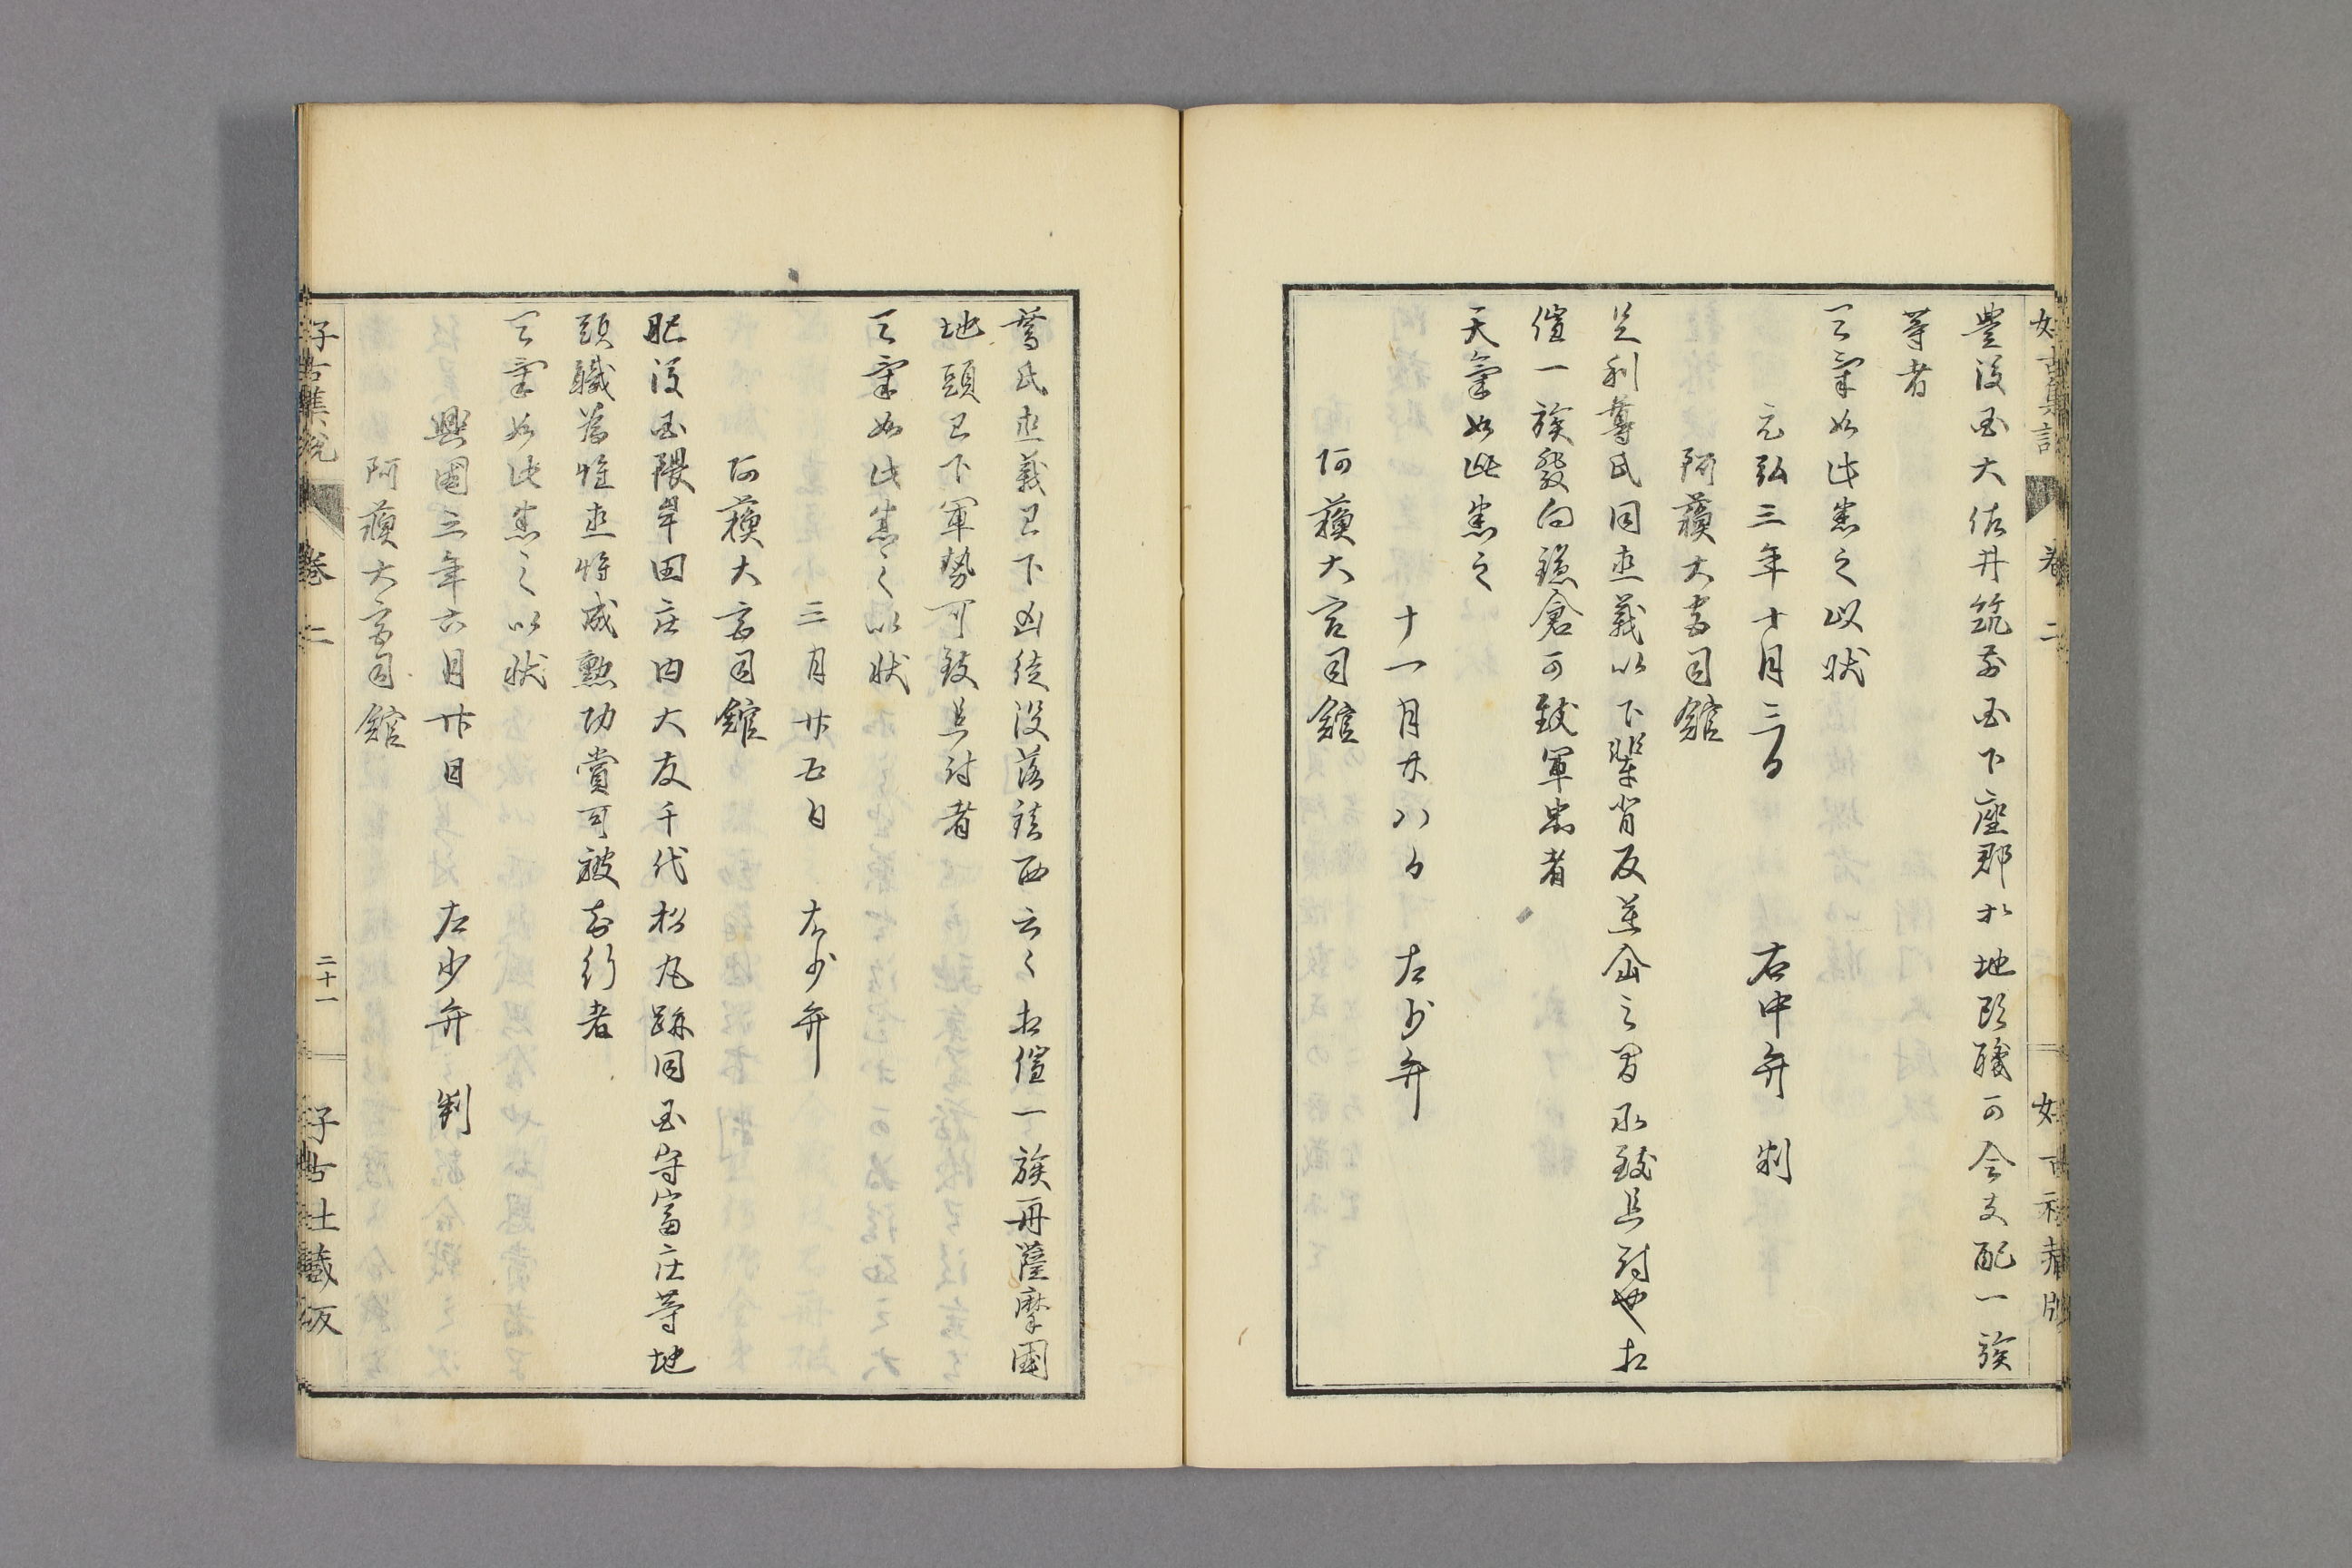 豊後国大佐井筑前国下座郡於地頭職可令支配一族
等者
天氣如此悉之以状
元弘三年十月三日 右中弁 判
阿蘓大宮司館
足利尊氏同直義以下輩背反逆企之間永致追討也相
催一族發向鎌倉可致軍忠者
天氣如此悉之
十一月廿八日 左少弁
阿蘓大宮司館
尊氏直義已下凶徒没落鎮西云々相催一族再薩摩國
地頭已下軍勢可致追討者
天氣如此悉之以状
三月廿五日 右少弁
阿蘓大宮司館
肥後国隈牟田庄内大友千代松丸跡同国守富庄等地
頭職為惟直惟成勲功賞可被知行者
天氣如此悉之以状
興國三年六月廿日 左少弁 判
阿蘓大宮司館
好古集説 巻二 二十一 好古社藏版